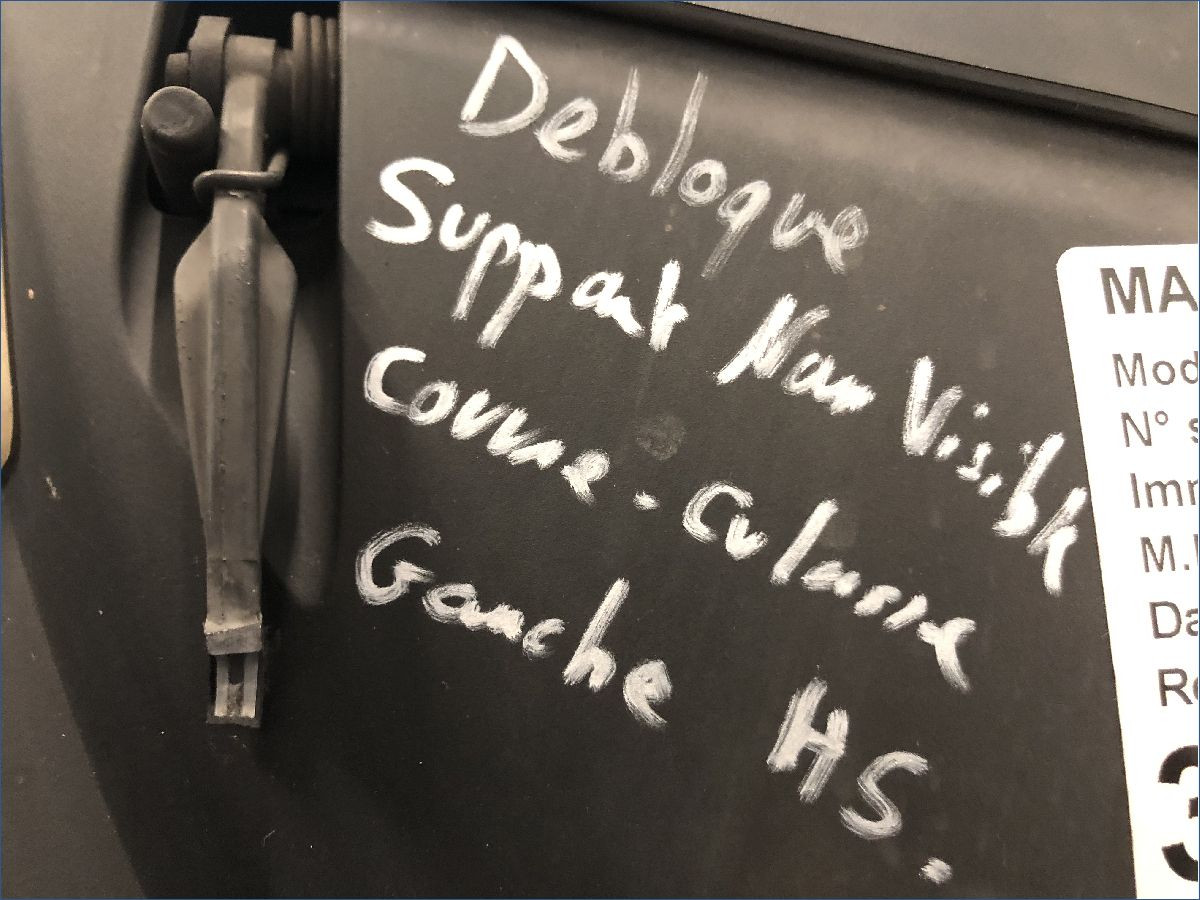 Debloque
Support Non Visible
couvre. culasse
Gauche HS.
MA
Mod
N° s
Imm
M.
Da
Re
3